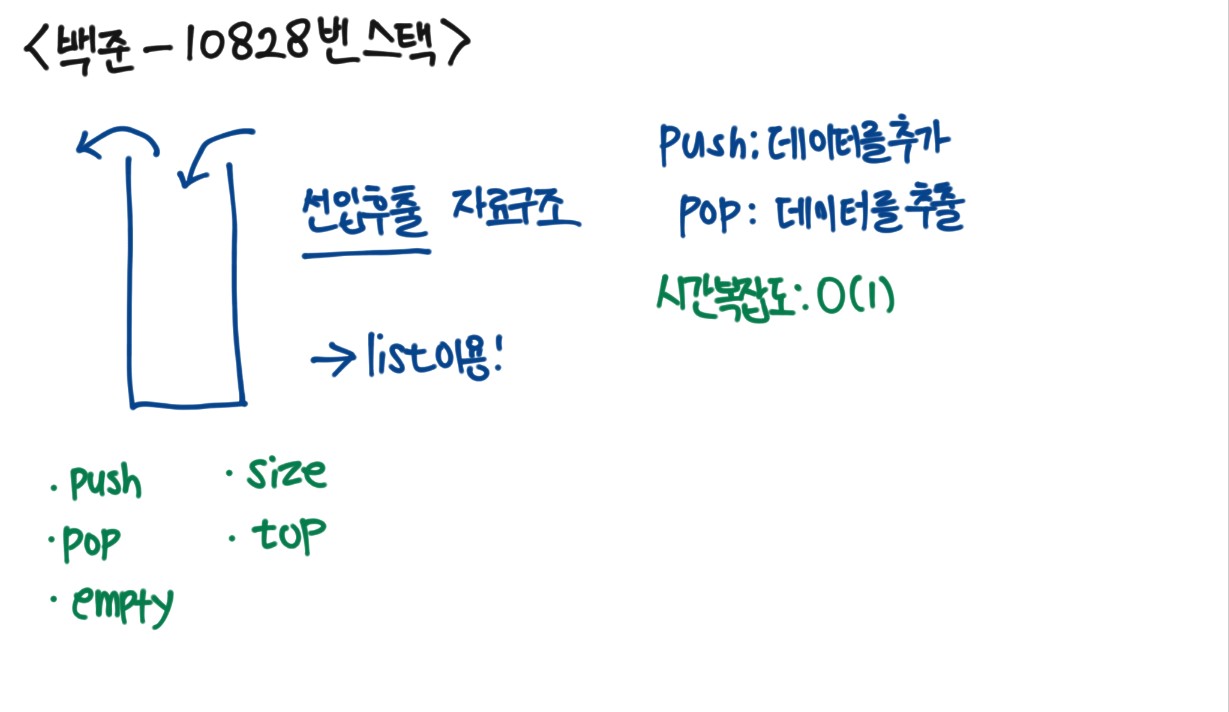 <백준 - 10828번 스택>
선입후출 자료구조
→ list이용!
Push: 데이터를 추가
pop: 데이터를 추출
시간복잡도: O(1)
· push
· pop
· empty
· size
· top